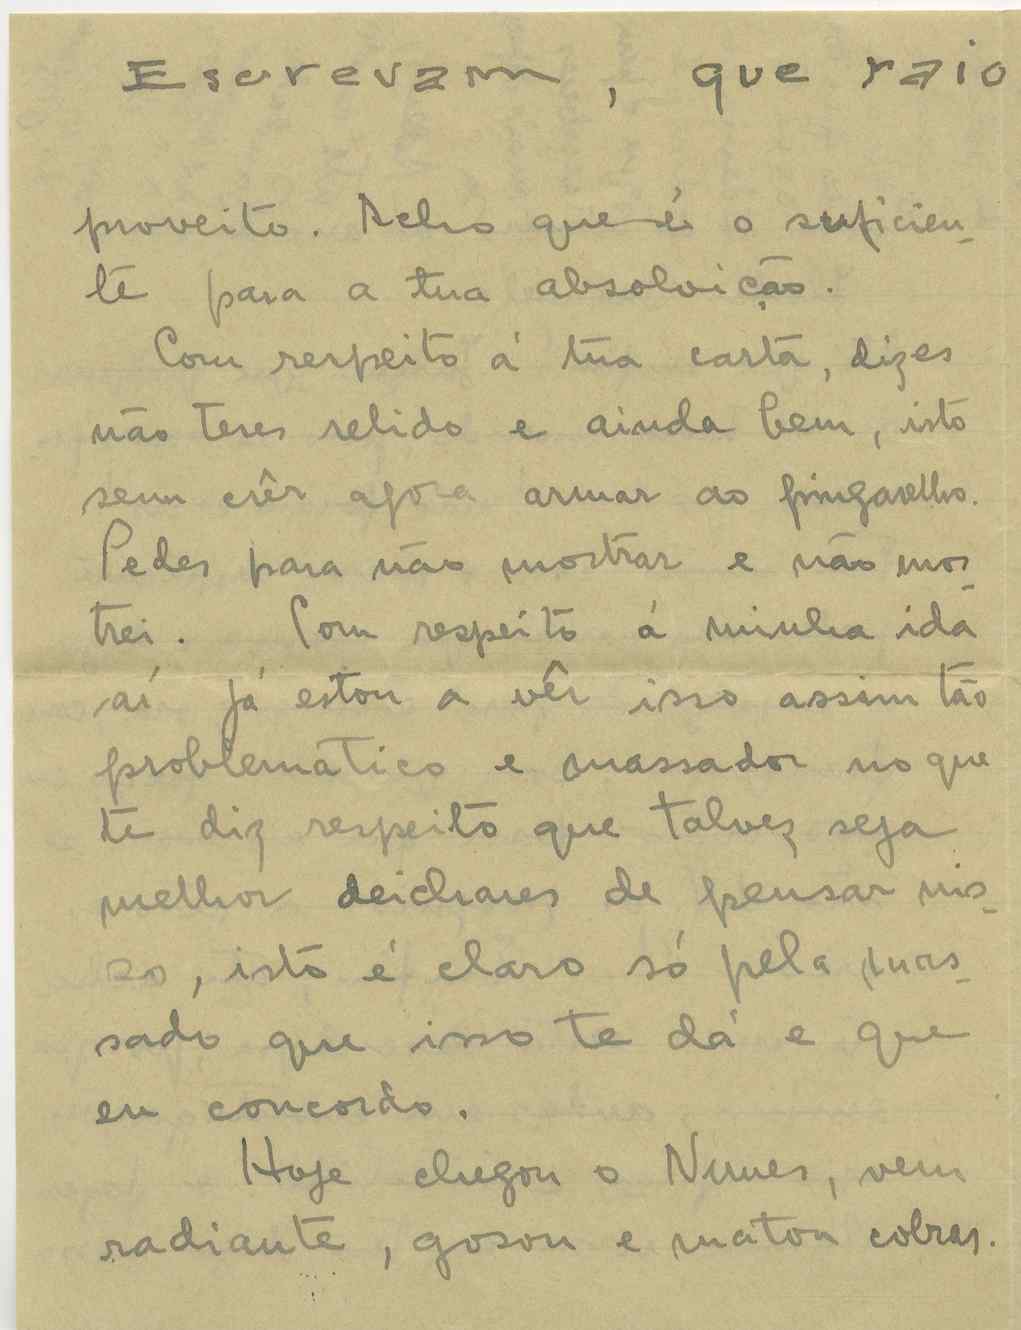 Escrevam, que raio
proveito. Acho que é o suficien-
te para a tua absolvição.
Com respeito á tua carta, dizes
não teres relido e ainda bem, isto
sem crêr agora armar ao pingarelho.
Pedes para não mostrar e não mos-
trei. Com respeito á minha ida
aí já estou a vêr isso assim tão
problemático e massador no que
te diz respeito que talvez seja
melhor deichares de pensar nis-
so, isto é claro só pela mas-
sada que isso te dá e que
eu concordo.
Hoje chegou o Nunes, vem
radiante, gosou e matou cobras.